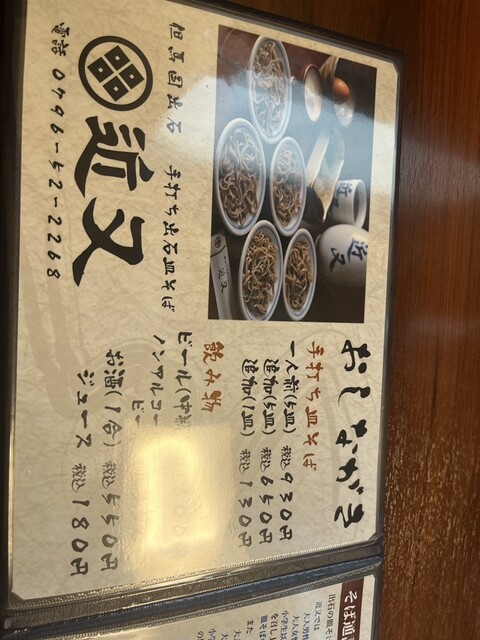 おしながき
手打ち皿そば
一人前(5皿) 税込 930円
追加(5皿) 税込 650円
追加(1皿) 税込 130円
飲み物
ビール(中
ノンアルコー
ビー
お酒(1合) 税込 450円
ジュース 税込 180円
但馬国出石 手打ち出石皿そば
近又
電話 0796-52-2268
近又
近又
そば通
出石の皿そ
近又では
大人男性
大人女
小学生
を召し
皿そば
また